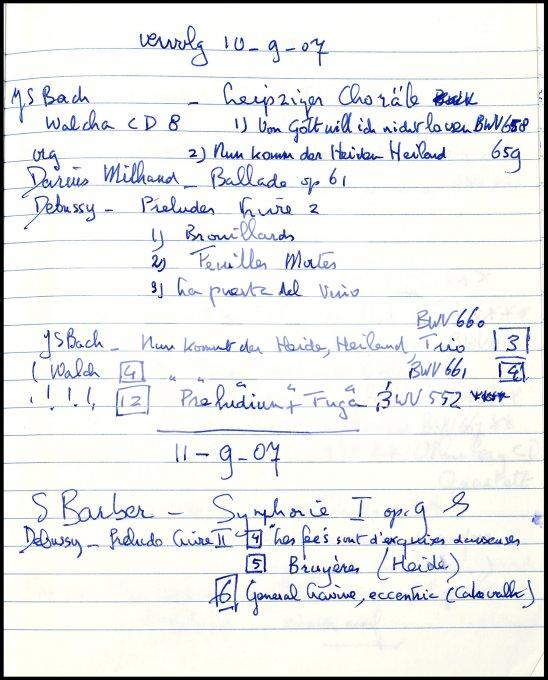 vervolg 10-9-07
JS Bach - Leipziger Choräle
Walcha CD 8 1) Von Gott will ich nicht lassen BWV 658
org 2) Nun komm der Heiden Heiland 659
Darius Milhaud - Ballade op 61
Debussy - Preludes Livre 2
1) Brouillards
2) Feuilles Mortes
3) La puerta del Vino
BWV 660
JS Bach - Nun kommt der Heide, Heiland, Trio 3
( Walch 4 " " " " BWV 661 4
! ! ! ! 12 Präludium + Fuga BWV 552 ****
11-9-07
S Barber - Symphonie I op. 9 S
Debussy - Preludo Livre II 4 "Les feés sont d'exquises danseuses
5 Bruyères (Heide)
6 General Lavine, eccentric (Cakewalk)